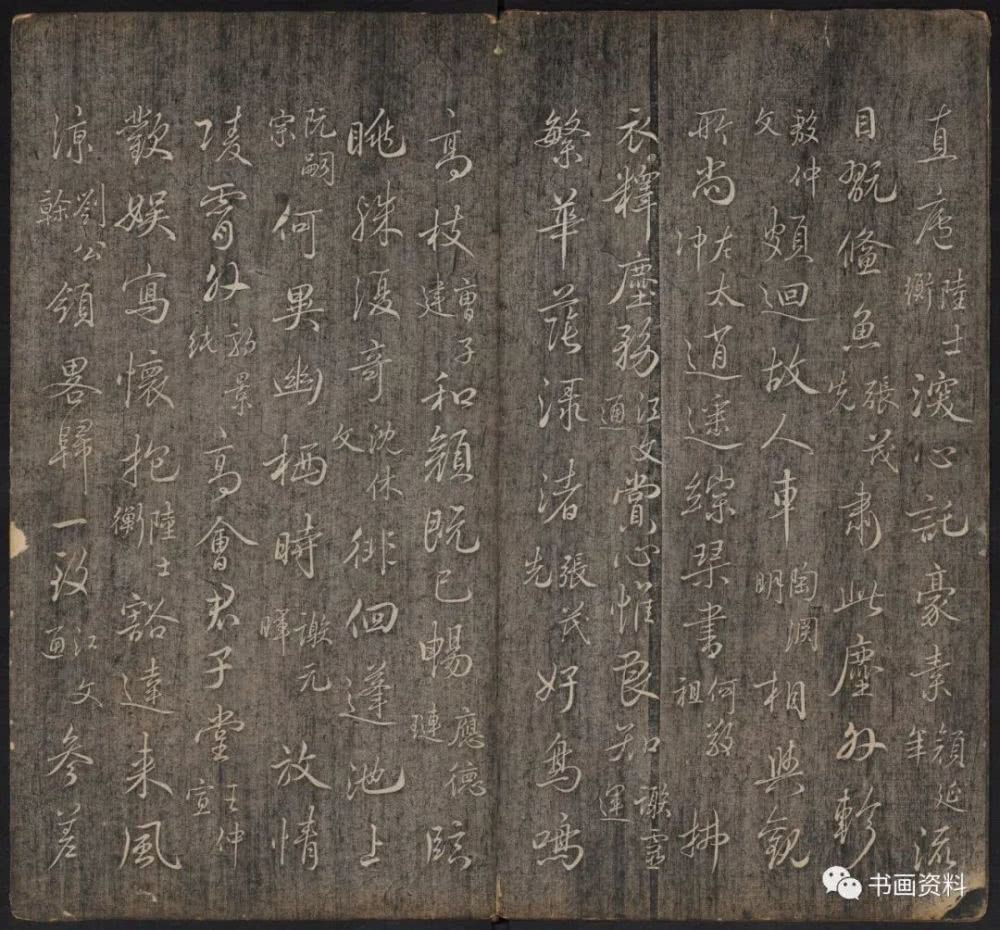 直廬陸士衡深心託豪素顔延年流
目翫儵魚張茂先肅此塵外軫
殷仲文頗迴故人車陶淵明相與觀
所尚左太冲逍遥綜琹書何敬祖拂
衣釋塵務江文通賞心惟良知謝靈運
繁華蔭渌渚張茂先好鳥鳴
高枝曹子建和顔既已暢應德璉臨
眺殊復奇沈休文徘徊蓬池上
阮嗣宗何異幽栖時謝元暉放情
陵霄外郭景純高會君子堂王仲宣
歡娱寫懷抱陸士衡豁達来風
涼劉公幹領畧歸一致江文通參差
书画资料